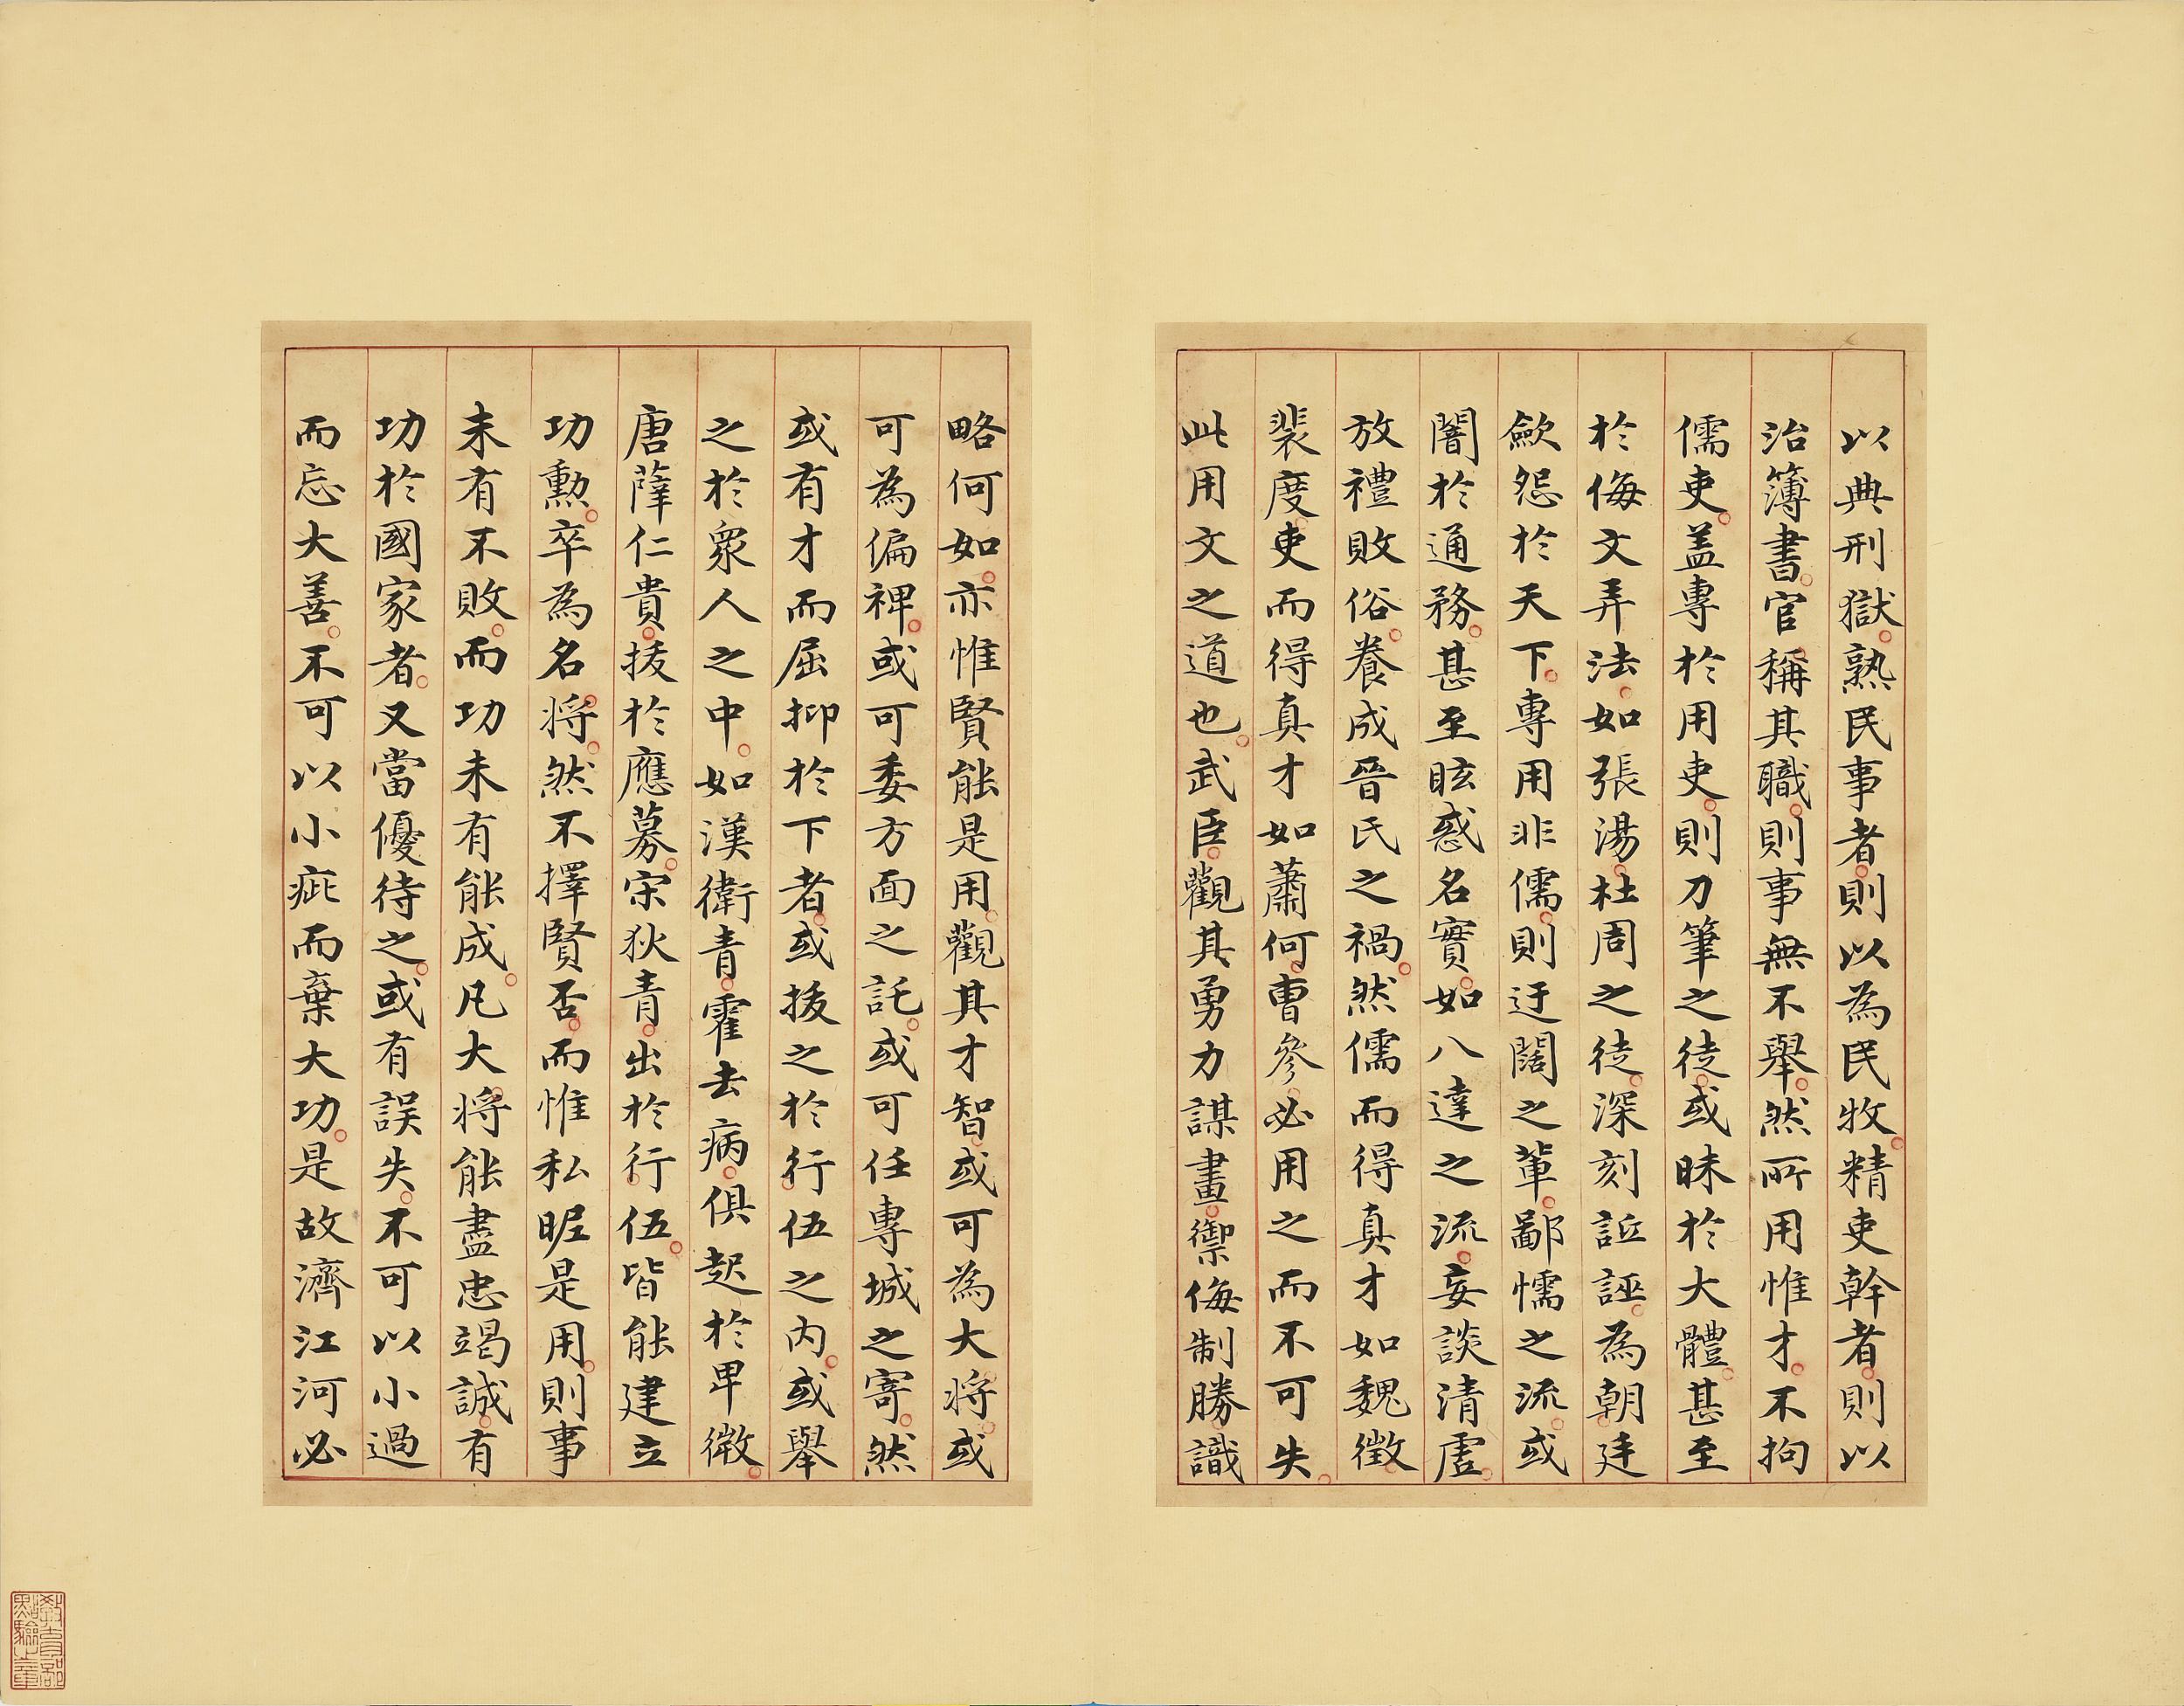 以典刑獄熟民事者則以為民牧精吏幹者則以
治簿書官稱其職則事無不舉然所用惟才不拘
儒吏蓋專於用吏則刀筆之徒或昧於大體甚至
於侮文弄法如張湯杜周之徒深刻詆誣為朝廷
歛怨於天下專用非儒則迂闊之輩鄙懦之流或
闇於通務甚至眩惑名實如八達之流妄談清虛
放禮敗俗養成晉氏之禍然儒而得真才如魏徵
裴度吏而得真才如蕭何曹參必用之而不可失
此用文之道也武臣觀其勇力謀畫禦侮制勝識
略何如亦惟賢能是用觀其才智或可為大將或
可為偏裨或可委方面之託或可任專城之寄然
或有才而屈抑於下者或拔之於行伍之內或舉
之於眾人之中如漢衛青霍去病俱起於卑微
唐薛仁貴拔於應募宋狄青出於行伍皆能建立
功勳卒為名將然不擇賢否而惟私昵是用則事
未有不敗而功未有能成凡大將能盡忠竭誠有
功於國家者又當優待之或有誤失不可以小過
而忘大善不可以小疵而棄大功是故濟江河必
教育部
點驗之章